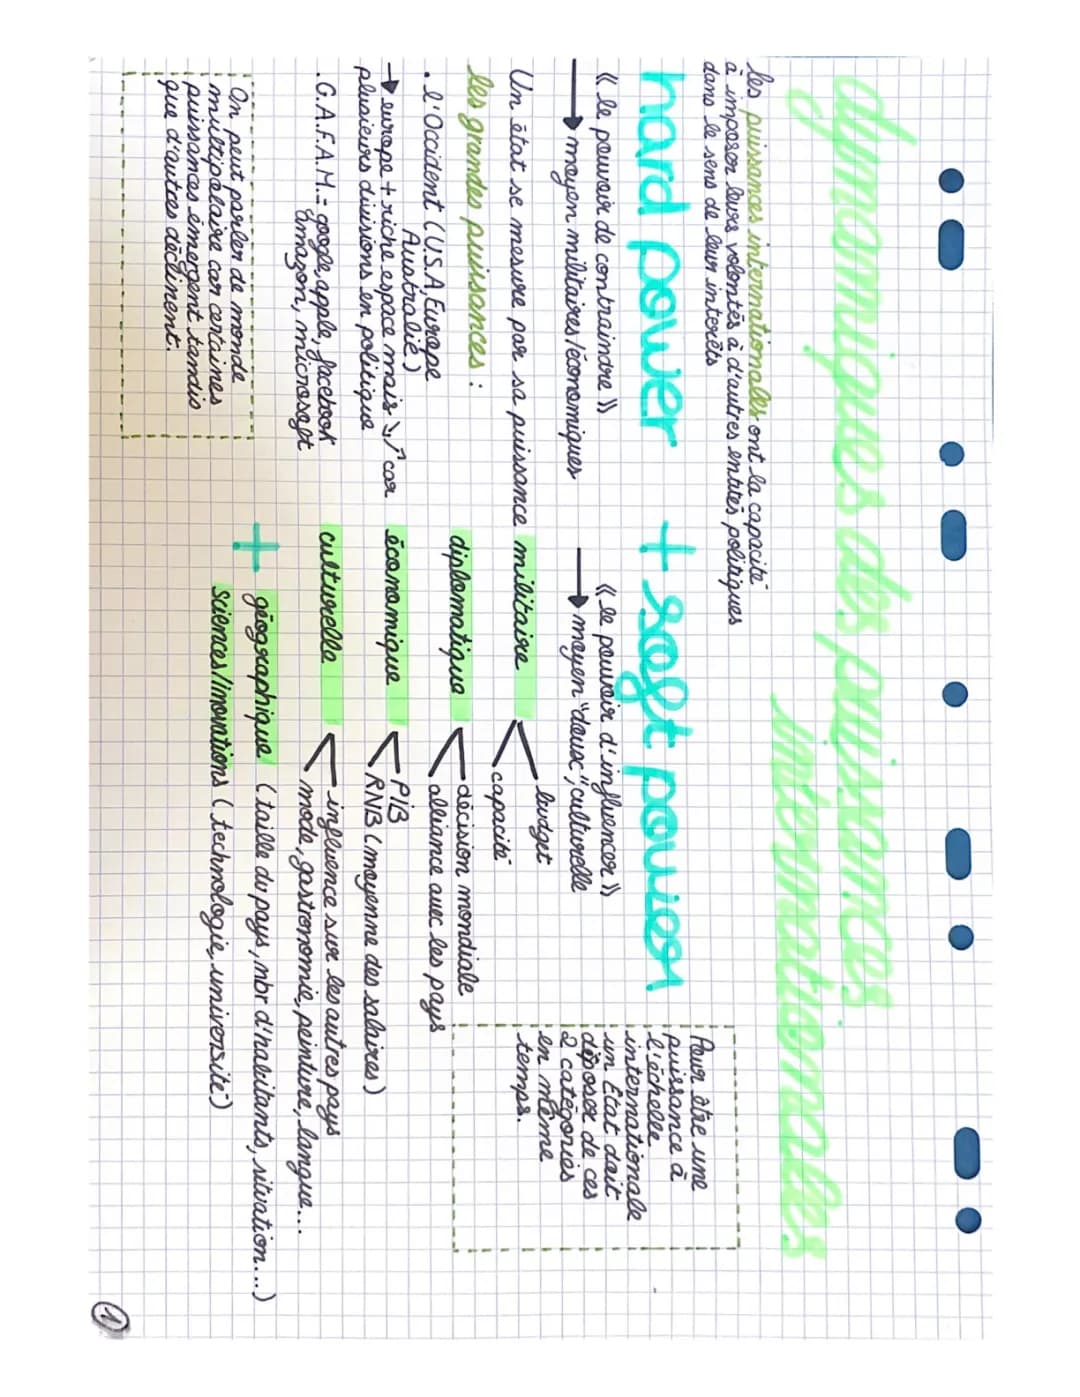 dynamiques des puissances
internationales
les puissances internationales ont la capacité
à imposer leurs volontés à d'autres entités politiques
dans le sens de leur interêts
hard power + soft power
« le pouvoir de contraindre »
→ moyen militaires/économiques
« le pouvoir d'influencer »
→ moyen "doux", culturelle
Pour être une
puissance à
l'échelle
internationale
un État doit
disposer de ces
2 catégories
en même
temps.
Un état se mesure par sa puissance militaire
budget
capacité
diplomatique
décision mondiale
alliance avec les pays
économique
PIB
RNB (moyenne des salaires)
culturelle
influence sur les autres pays
mode, gastronomie, peinture, langue...
+ géographique (taille du pays, nbr d'habitants, situation...)
sciences/inovations (technologie, université)
les grandes puissances :
. l'Occident (U.S.A, Europe
Australie)
→ europe + riche espace mais ↘↗ car
plusieurs divisions en politique
. G.A.F.A.M. = google, apple, facebook
amazon, microsoft
On peut parler de monde
multipolaire car certaines
puissances émergent tandis
que d'autres déclinent.
1